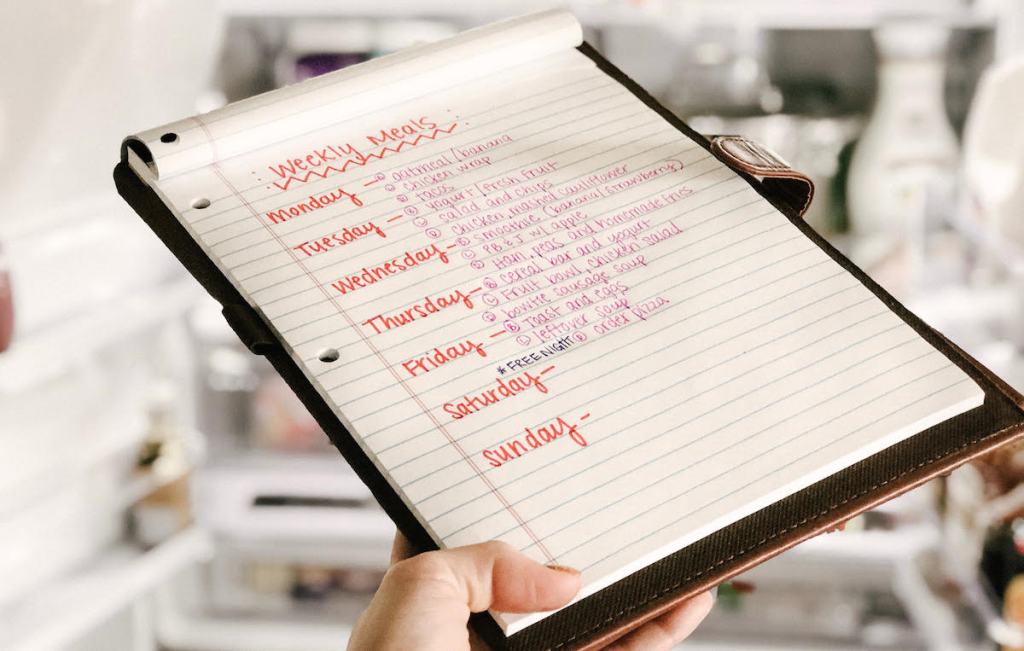 Weekly Meals
Monday - Ⓑ oatmeal/banana
Ⓛ chicken wrap
Ⓓ tacos
Tuesday - Ⓑ Yogurt/Fresh Fruit
Ⓛ salad and chips
Ⓓ Chicken, mashed cauliflower
Wednesday - Ⓑ smoothie (banana/strawberries)
Ⓛ PB & J w/ apple
Ⓓ Ham, peas and homemade fries
Thursday - Ⓑ cereal bar and yogurt
Ⓛ Fruit bowl, chicken salad
Ⓓ bowtie sausage soup
Friday - Ⓑ Toast and eggs
Ⓛ leftover soup
*FREE NIGHT Ⓓ order pizza
Saturday -
Sunday -